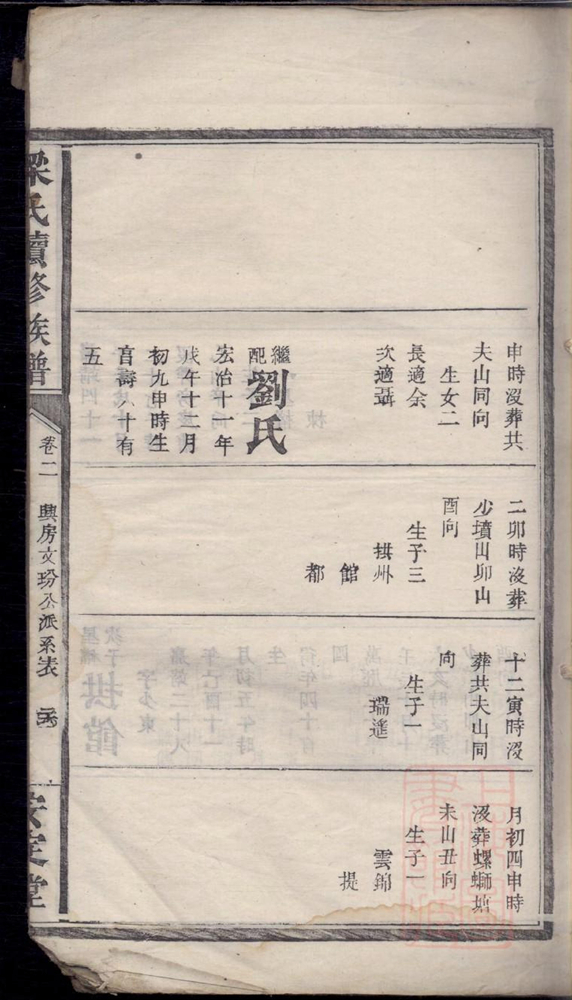 申時沒葬共
夫山同向
生女二
長適余
次適聶
繼配劉氏
宏治十一年
戊午十二月
初九申時生
育壽八十有
五
二卯時沒葬
少墳山卯山
酉向
生子三
拱州
館
都
十二寅時沒
葬共夫山同
向
生子一
瑞遙
月初四申時
沒葬螺螄塘
未山丑向
生子一
雲錦
提
梁氏續修族譜
卷二
興房文玢公派系表
安定堂